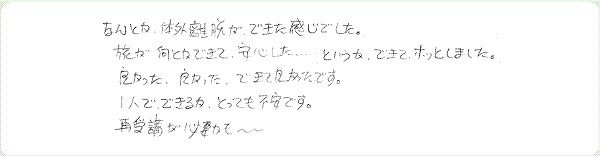 なんとか、体外離脱が、できた感じでした。
旅が何とかできて、安心した……というか、できて、ホッとしました。
良かった、良かった、できて良かったです。
1人で、できるか、とっても不安です。
再受講が必要かも〜〜